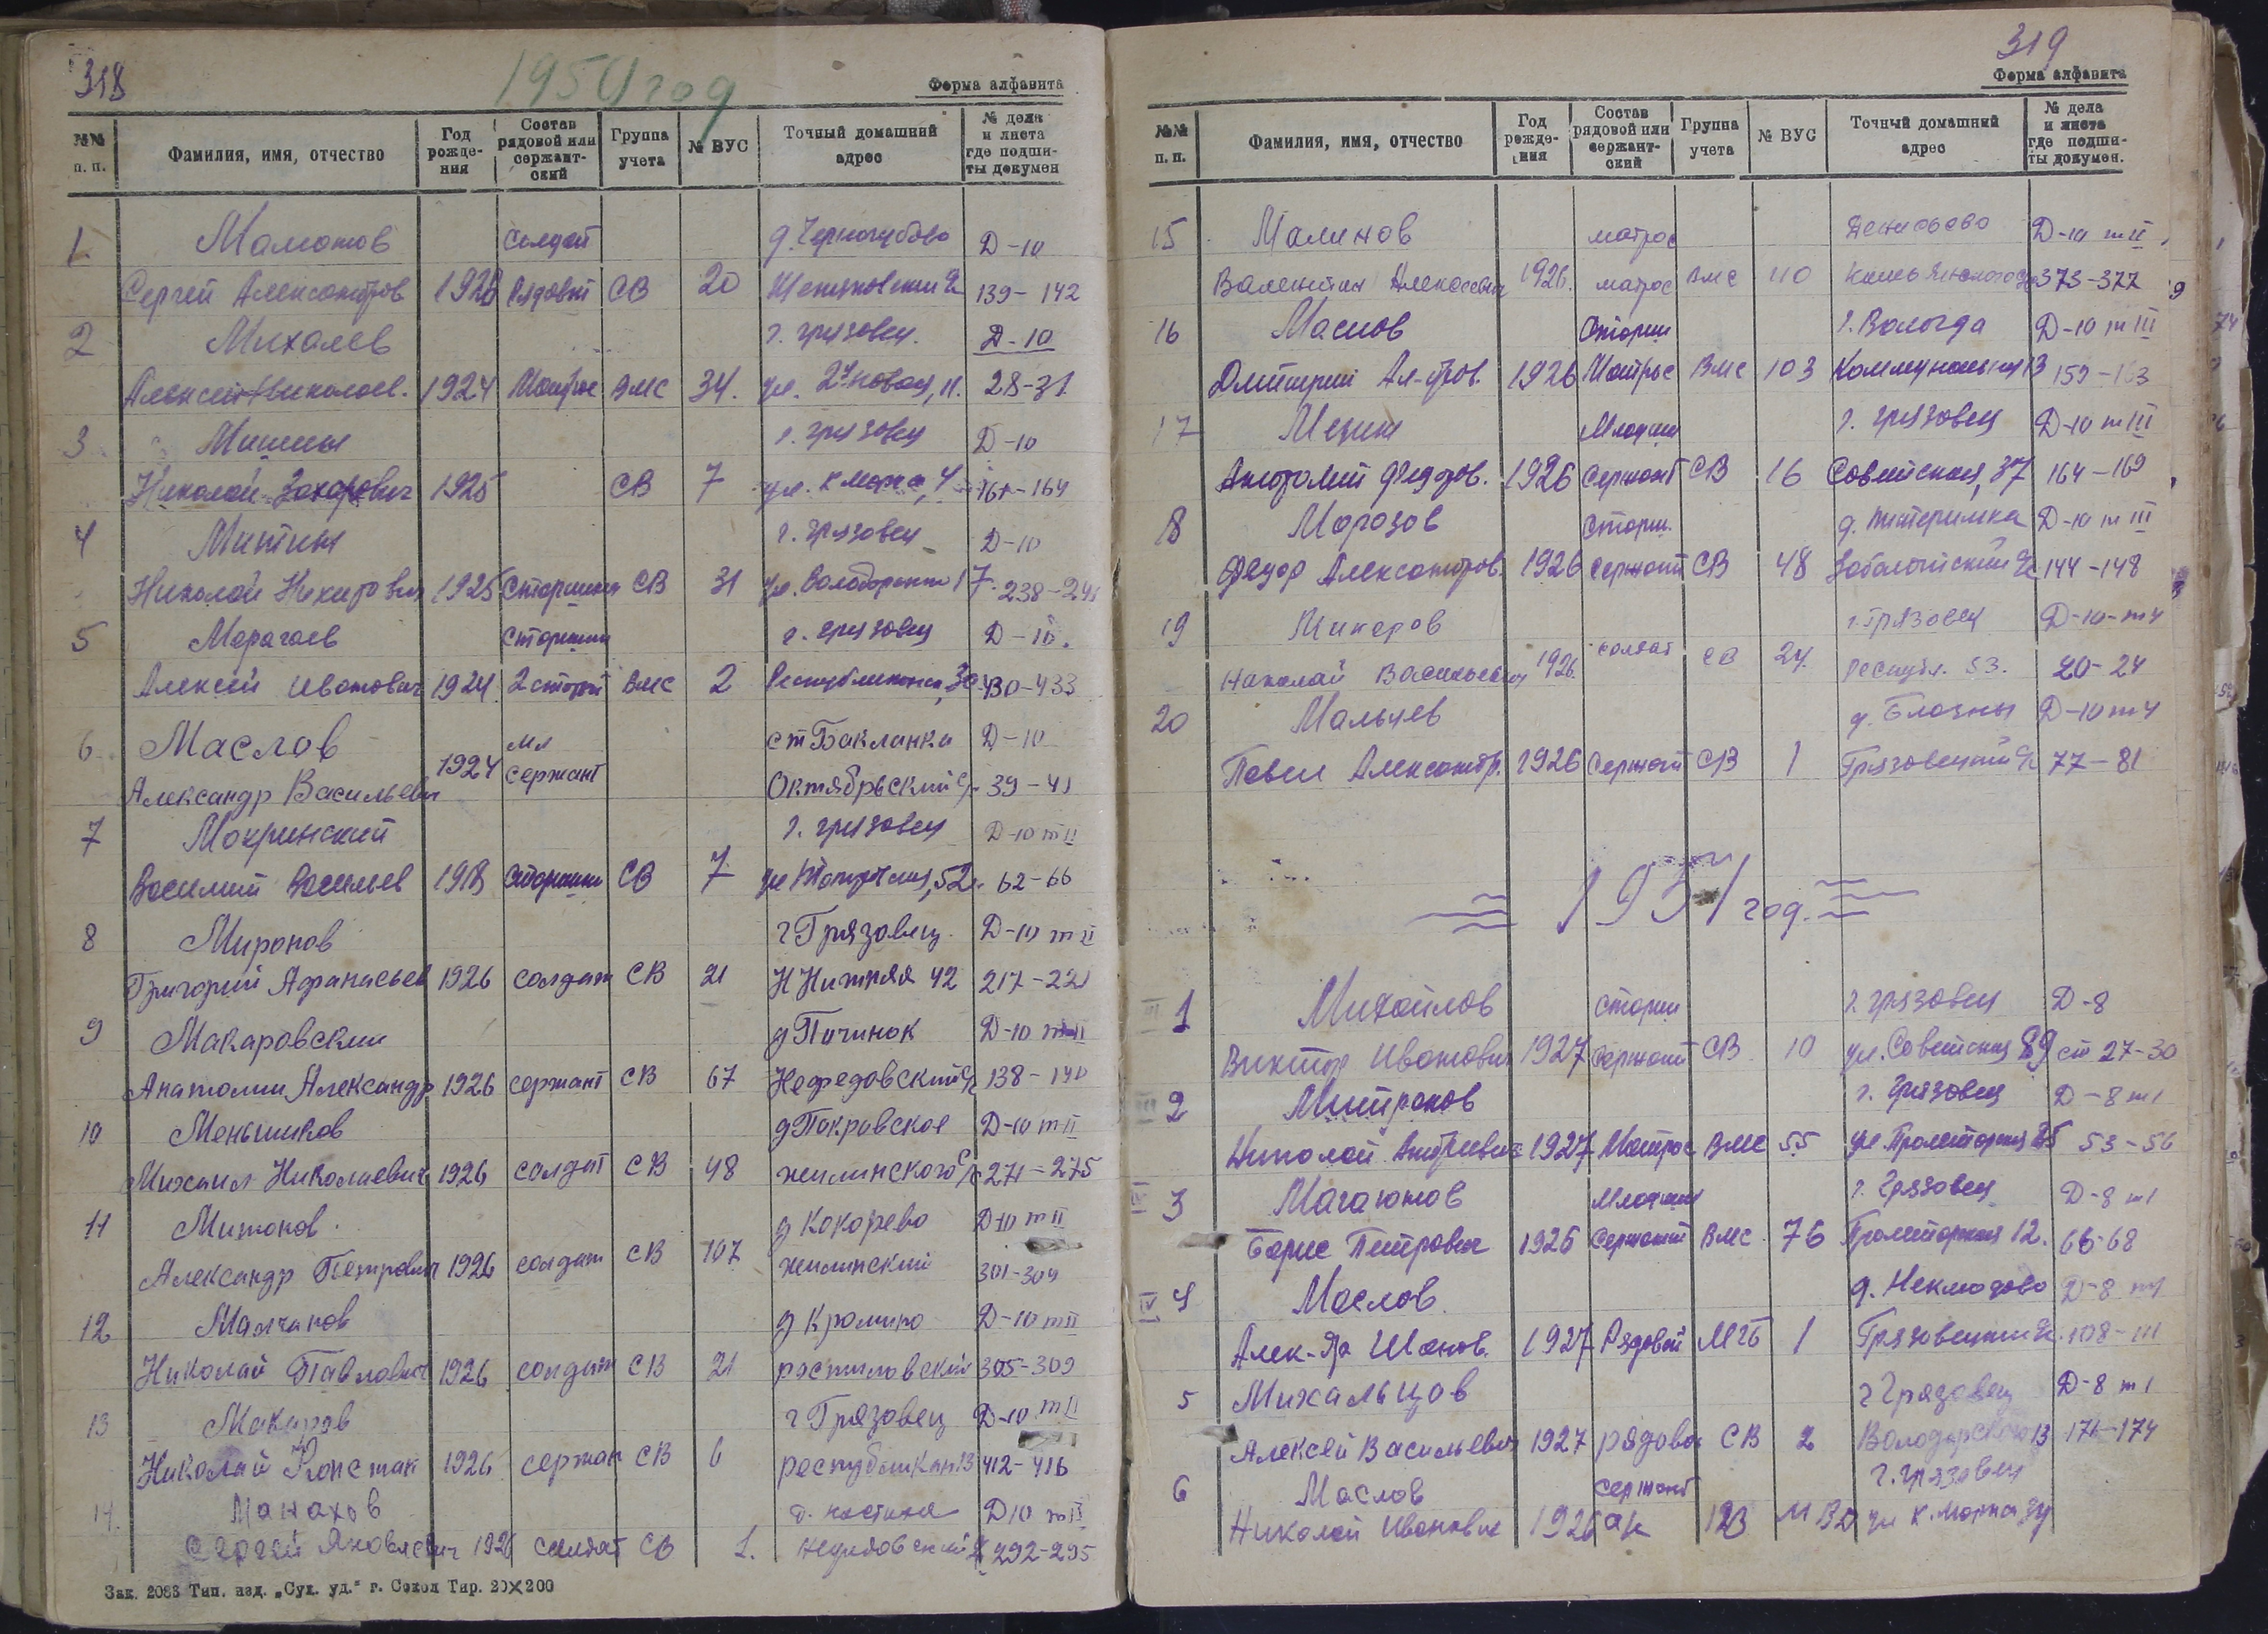 318
1950 год
Форма алфавита
№№ п. п. Фамилия, имя, отчество Год рожде- ния Состав рядовой или сержант- ский Группа учета № ВУС Точный домашний адрес № дела и листа где подши- ты докумен
1. Мамонтов солдат Д-10
Сергей Александров 1926 Рядовой СВ 20 139-142
2 Михалев г. Грязовец. Д-10
Алексей Николаев. 1924 Матрос ВМС 34. ул. 2я Новая, 11. 28-31
3 Мишин г. Грязовец Д-10
Николай Захарович 1925 СВ 7 ул. К Маркса, 4 161-164
4 Митин г. Грязовец Д-10
Николай Никитрович 1925 Старшина СВ 31 ул. Володарского 17. 238-241
5 Марагаев Старшина г. Грязовец Д-10.
Алексей Иванович 1924 2 статьи ВМС 2 Республиканск, 30 430-433
6 Маслов мл ст Бакланка Д-10
Александр Васильевич 1924 сержант Октябрьский с/с 39-41
7 Мокринский г. Грязовец Д-10 т II
Василий Васильев 1918 Старшина СВ 7 62-66
8 Миронов г Грязовец. Д-10 т II
Григорий Афанасьев 1926 солдат СВ 21 Н Нижняя 42 217-221
9 Макаровский д Починок Д-10 т II
Анатолий Александр 1926 сержант СВ 67 Нефедовский с/с 138-140
10 Меньшиков д Покровское Д-10 т II
Михаил Николаевич 1926 солдат СВ 48 жилинского с/с 271-275
11 Митонов. д Кокорево Д-10 т II
Александр Петрович 1926 солдат СВ 107 жилинский 301-304
12 Малчанов д Кромино Д-10 т II
Николай Павлович 1926 солдат СВ 21 ростиловский 305-309
13 Макаров г Грязовец Д-10 т II
Николай Констан 1926 сержан СВ 6 республикан 13 412-416
14. Манахов Д10 т II
Сергей Яковлевич 1926 солдат СВ 1. 292-295
Зак. 2088 Тип. изд. „Сух. уд." г. Сокол Тир. 20×200
319
Форма алфавита
№№ п. п. Фамилия, имя, отчество Год рожде- ния Состав рядовой или сержант- ский Группа учета № ВУС Точный домашний адрес № дела и листа где подши- ты докумен.
15 Малинов матрос Денисьево Д-10 т II
Валентин Алексеевич 1926. матрос ВМС 110 373-377
16 Маслов Старши г. Вологда Д-10 т III
Дмитрий Ал-дров. 1926 Матрос ВМС 103 Коммунальная 13 159-163
17 Мезин Младши г. Грязовец Д-10 т III
Анатолий Федоров. 1926 Сержант СВ 16 Советская, 37 164-169
18 Морозов Старши. Д-10 т III
Федор Александров. 1926 сержант СВ 48 144-148
19 Макаров г. Грязовец Д-10-т 4
Николай Васильевич 1926. солдат СВ 24. Республ. 53. 20-24
20 Мальцев Д-10 т 4
Павел Александр. 1926 Сержант СВ 1 Грязовецкий с/с 77-81
1951 год.
1 Михайлов Старши г. Грязовец Д-8
Виктор Иванович 1927 Сержант СВ 10 ул. Советская 89 ст 27-30
2 Митронов г. Грязовец Д-8 т 1
Николай Андреевич 1927 Матрос ВМС 55 ул. Пролетарская 25 53-56
3 Магаютов Младши г. Грязовец Д-8 т 1
Борис Петрович 1926 Сержант ВМС 76 Пролетарская 12. 66-68
IV 4 Маслов. д. Неклюдово Д-8 т 1
Алек-др Иванов. 1927 Рядовой МГБ 1 Грязовецкий с/с. 108-111
5 Михальцов г Грязовец Д-8 т 1
Алексей Васильевич 1927 рядово СВ 2 Володарского 13 171-174
6 Маслов сержант г. Грязовец
Николай Иванович 1926 МВД ул К. Маркса 34